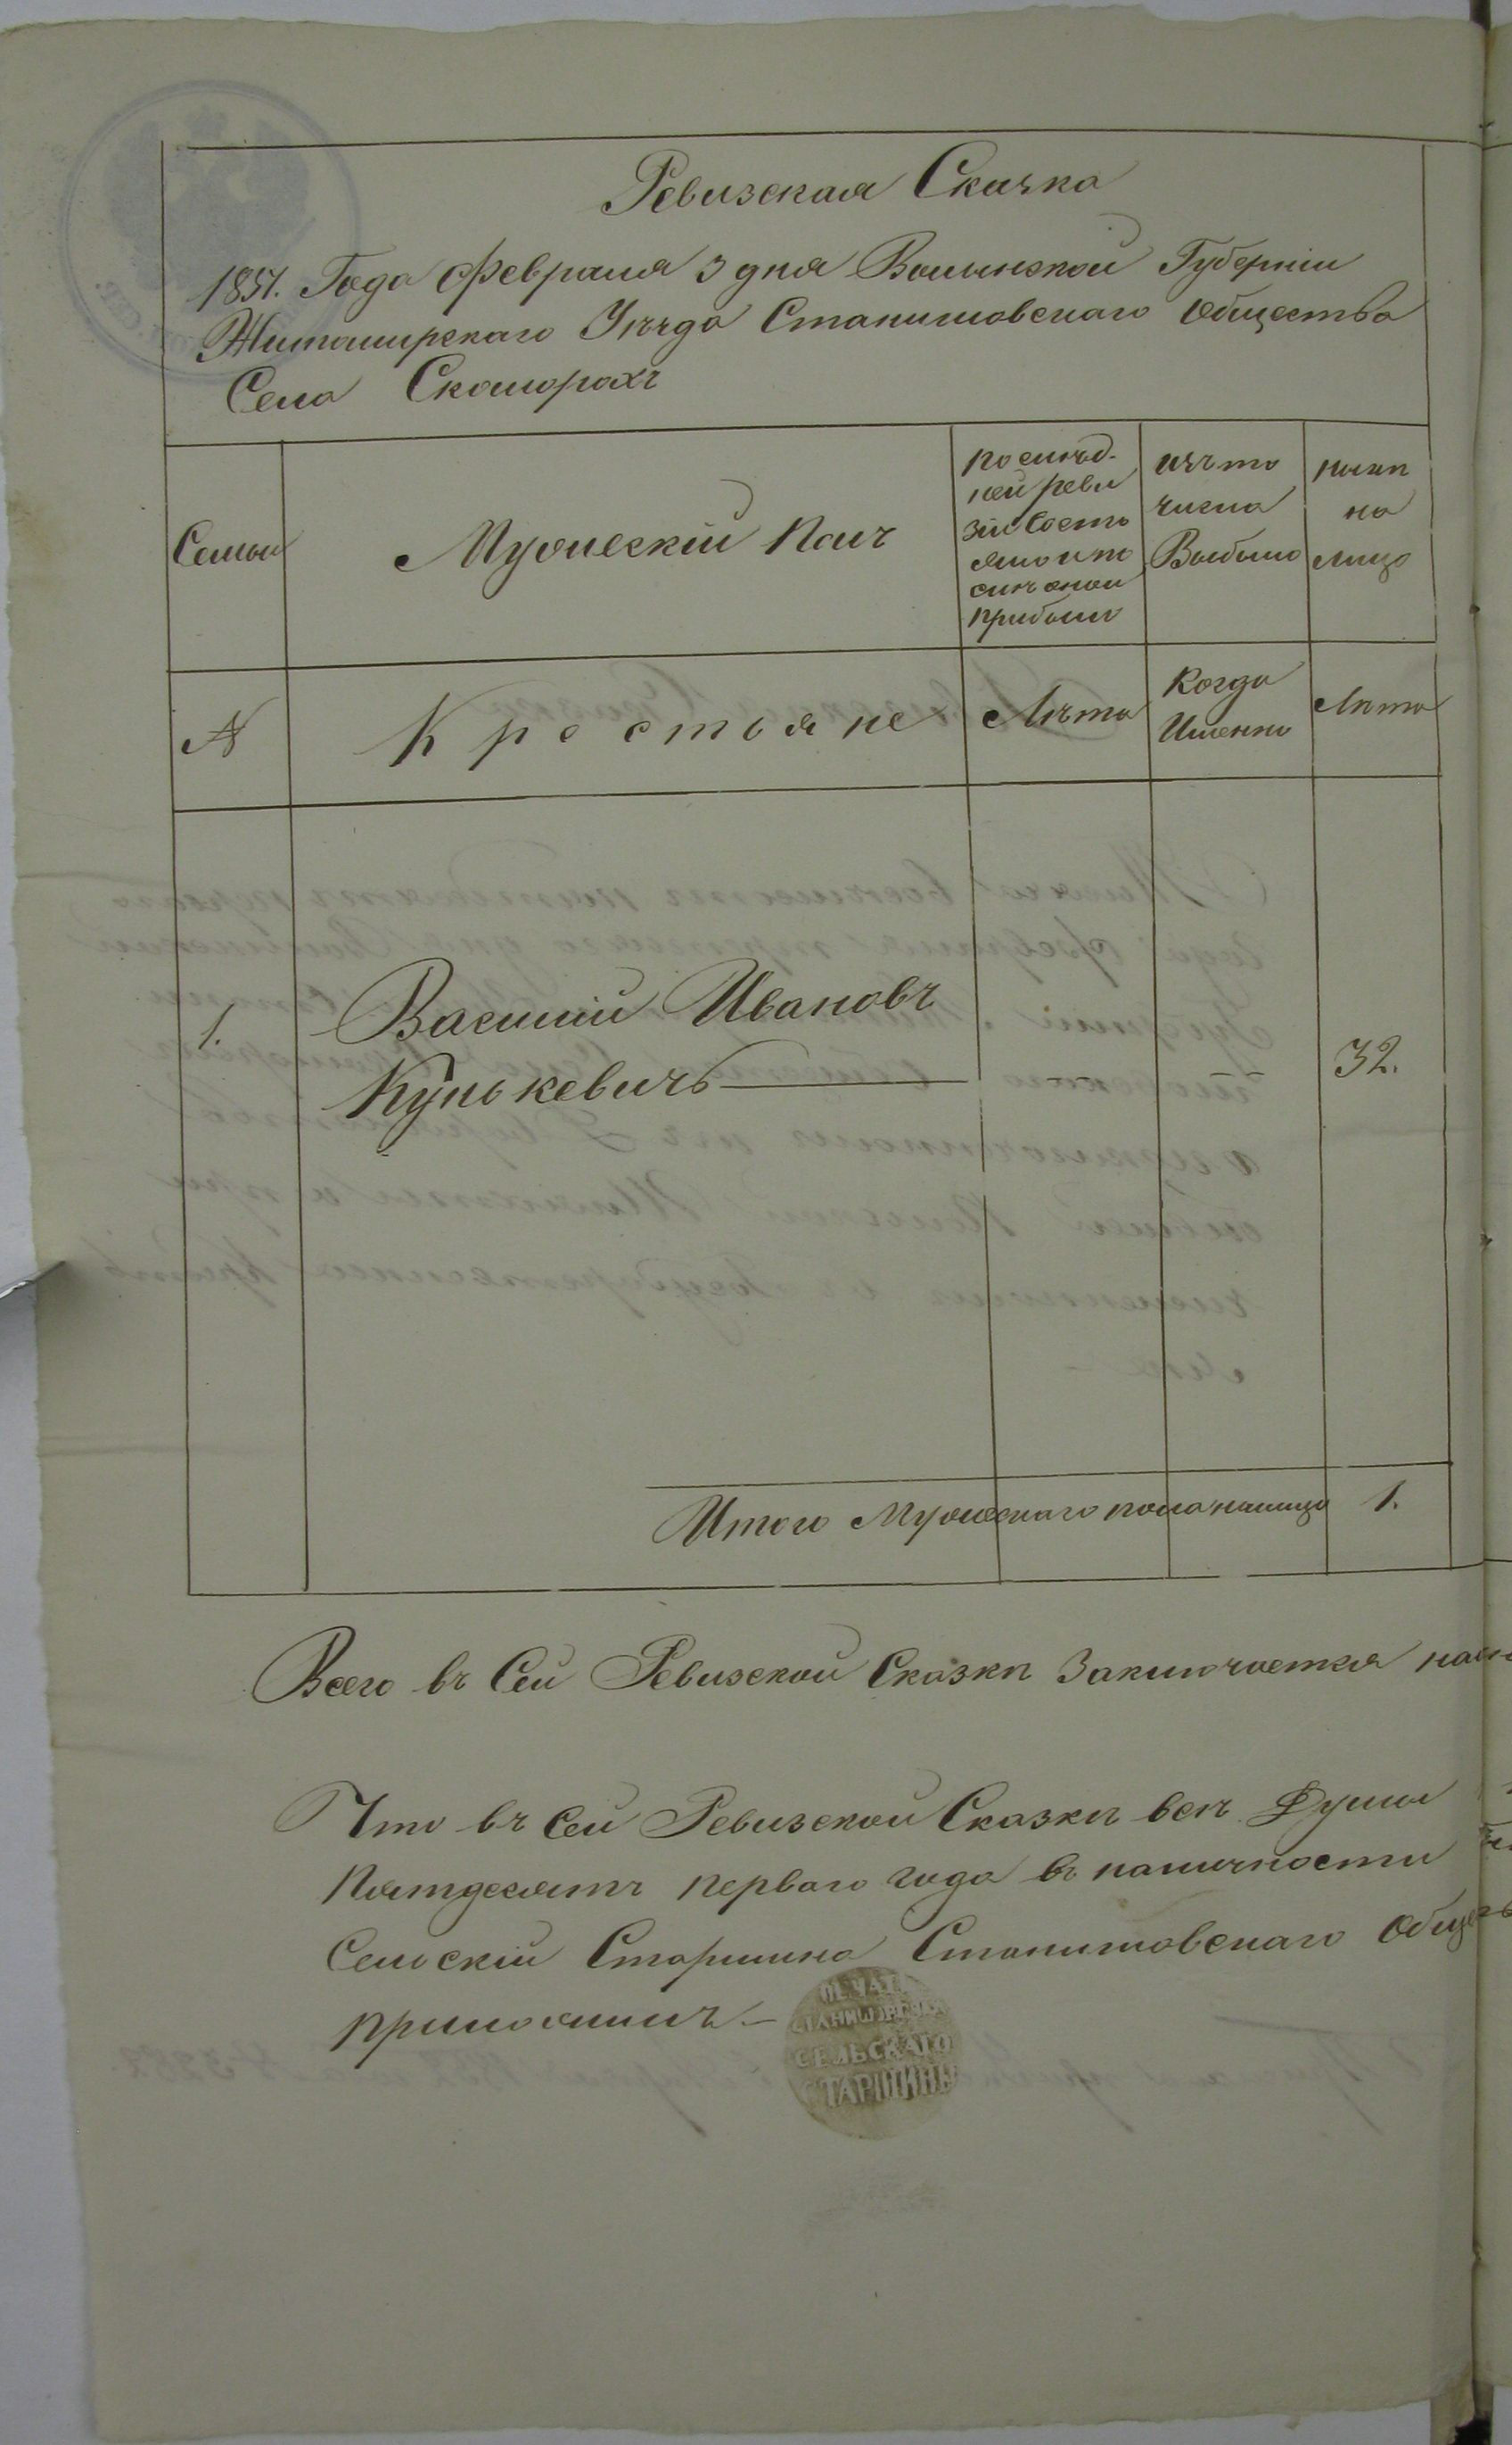 Ревизская Сказка
1851. Года Февраля 3 дня Волынской Губерніи
Житомирскаго Уѣзда Станишовскаго Общества
Села Скоморахъ
Семьи
Мужескій Полъ
По послѣд-
ней реви
зіи Состо
яло и по
слѣ оной
прибыло
Изъ то
числа
Выбыло
Нынѣ
на
лицо
№
Крестьяне
Лѣта
Когда
Именно
Лѣта
1.
Василій Ивановъ
Кулькевичъ
32.
Итого Мужескаго пола налицо 1.
Всего въ Сей Ревизской Сказкѣ Заключается
Что въ Сей Ревизской Сказкѣ всѣ Души
Пятдесятъ перваго года въ наличности
Сельскій Старшина Станишовскаго Общес
приложилъ
ПЕЧАТЬ
СЕЛЬСКАГО
СТАРШИНЫ